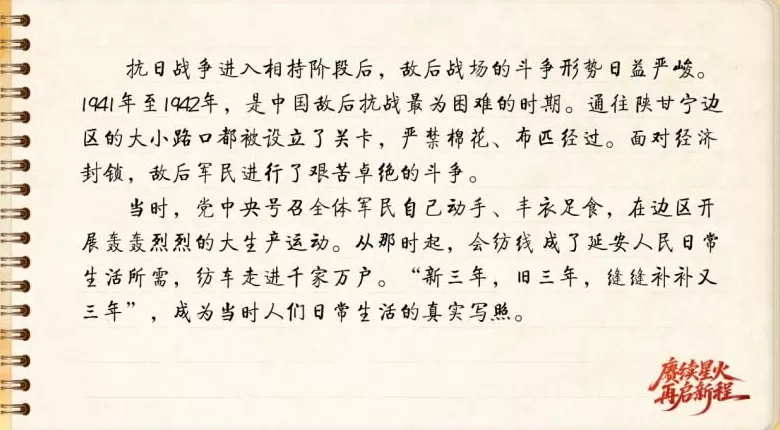 抗日战争进入相持阶段后，敌后战场的斗争形势日益严峻。
1941年至1942年，是中国敌后抗战最为困难的时期。通往陕甘宁边
区的大小路口都被设立了关卡，严禁棉花、布匹经过。面对经济
封锁，敌后军民进行了艰苦卓绝的斗争。
当时，党中央号召全体军民自己动手、丰衣足食，在边区开
展轰轰烈烈的大生产运动。从那时起，会纺线成了延安人民日常
生活所需，纺车走进千家万户。“新三年，旧三年，缝缝补补又
三年”，成为当时人们日常生活的真实写照。
赓续星火
再启新程